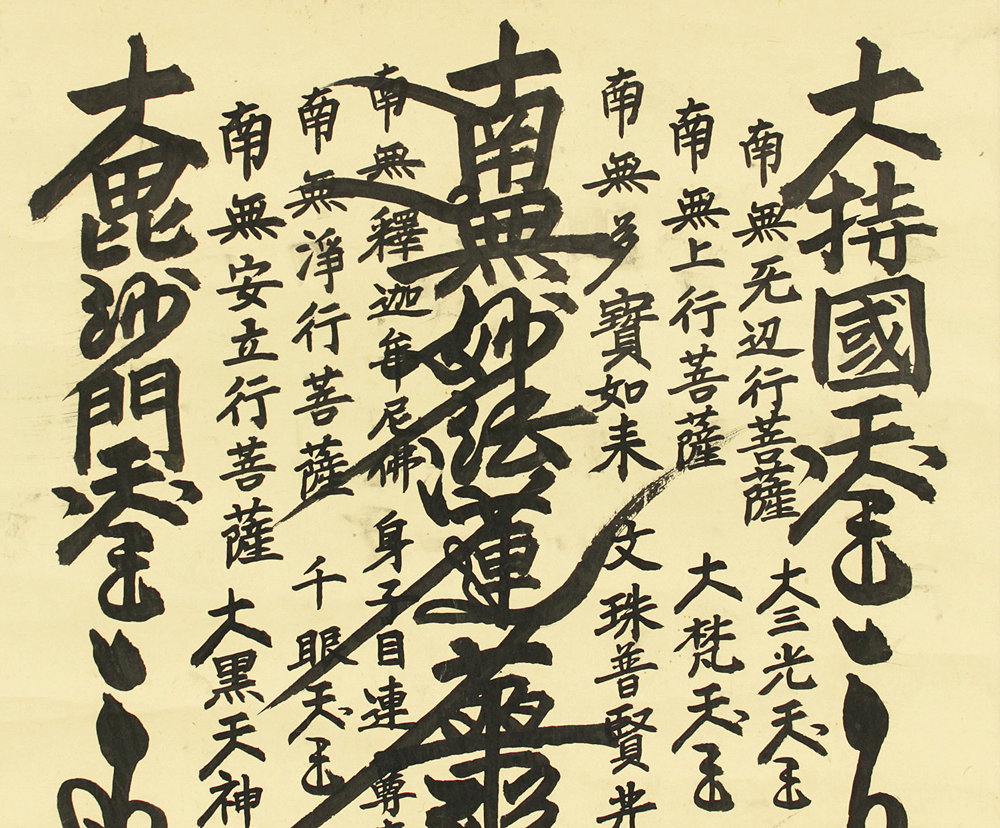 大持國天王
南無无辺行菩薩
大三光天王
南無上行菩薩
大梵天王
南無多寶如来
文珠普賢井
南無妙法蓮華
南無釋迦牟尼佛
身子目連尊
南無淨行菩薩
千眼天王
南無安立行菩薩
大黒天神
大毘沙門天王